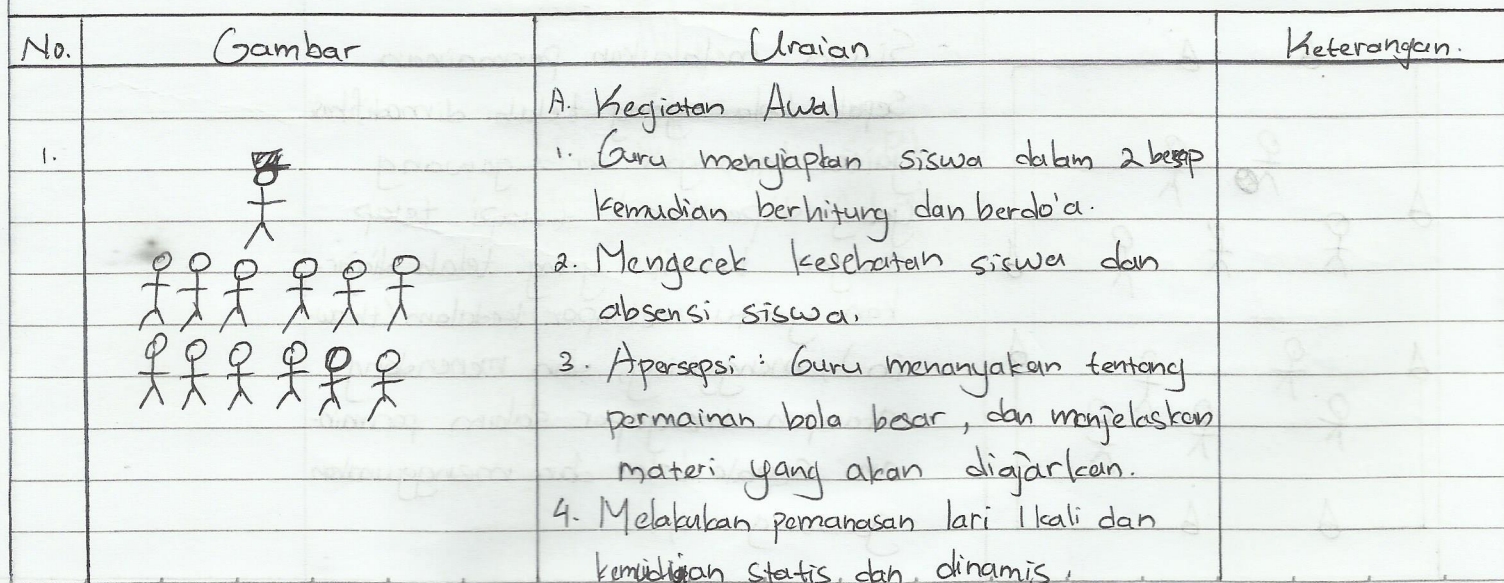 No. Gambar Uraian Keterangan.
A. Kegiatan Awal
1. 1. Guru menyiapkan siswa dalam 2 besap
kemudian berhitung dan berdo'a.
2. Mengecek kesehatan siswa dan
absensi siswa.
3. Apersepsi : Guru menanyakan tentang
permainan bola besar, dan menjelaskan
materi yang akan diajarkan.
4. Melakukan pemanasan lari 1 kali dan
kemudian statis dan dinamis.